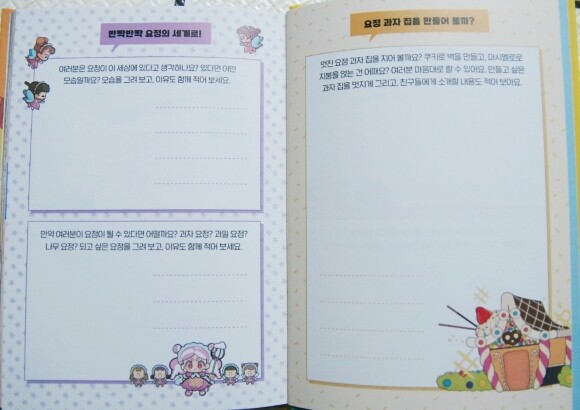 반짝반짝 요정의 세계로!
여러분은 요정이 이 세상에 있다고 생각하나요? 있다면 어떤
모습일까요? 모습을 그려 보고, 이유도 함께 적어 보세요.
만약 여러분이 요정이 될 수 있다면 어떨까요? 과자 요정? 과일 요정?
나무 요정? 되고 싶은 요정을 그려 보고, 이유도 함께 적어 보세요.
요정 과자 집을 만들어 볼까?
멋진 요정 과자 집을 지어 볼까요? 쿠키로 벽을 만들고, 마시멜로로
지붕을 얹는 건 어때요? 여러분 마음대로 할 수 있어요. 만들고 싶은
과자 집을 멋지게 그리고, 친구들에게 소개할 내용도 적어 보아요.